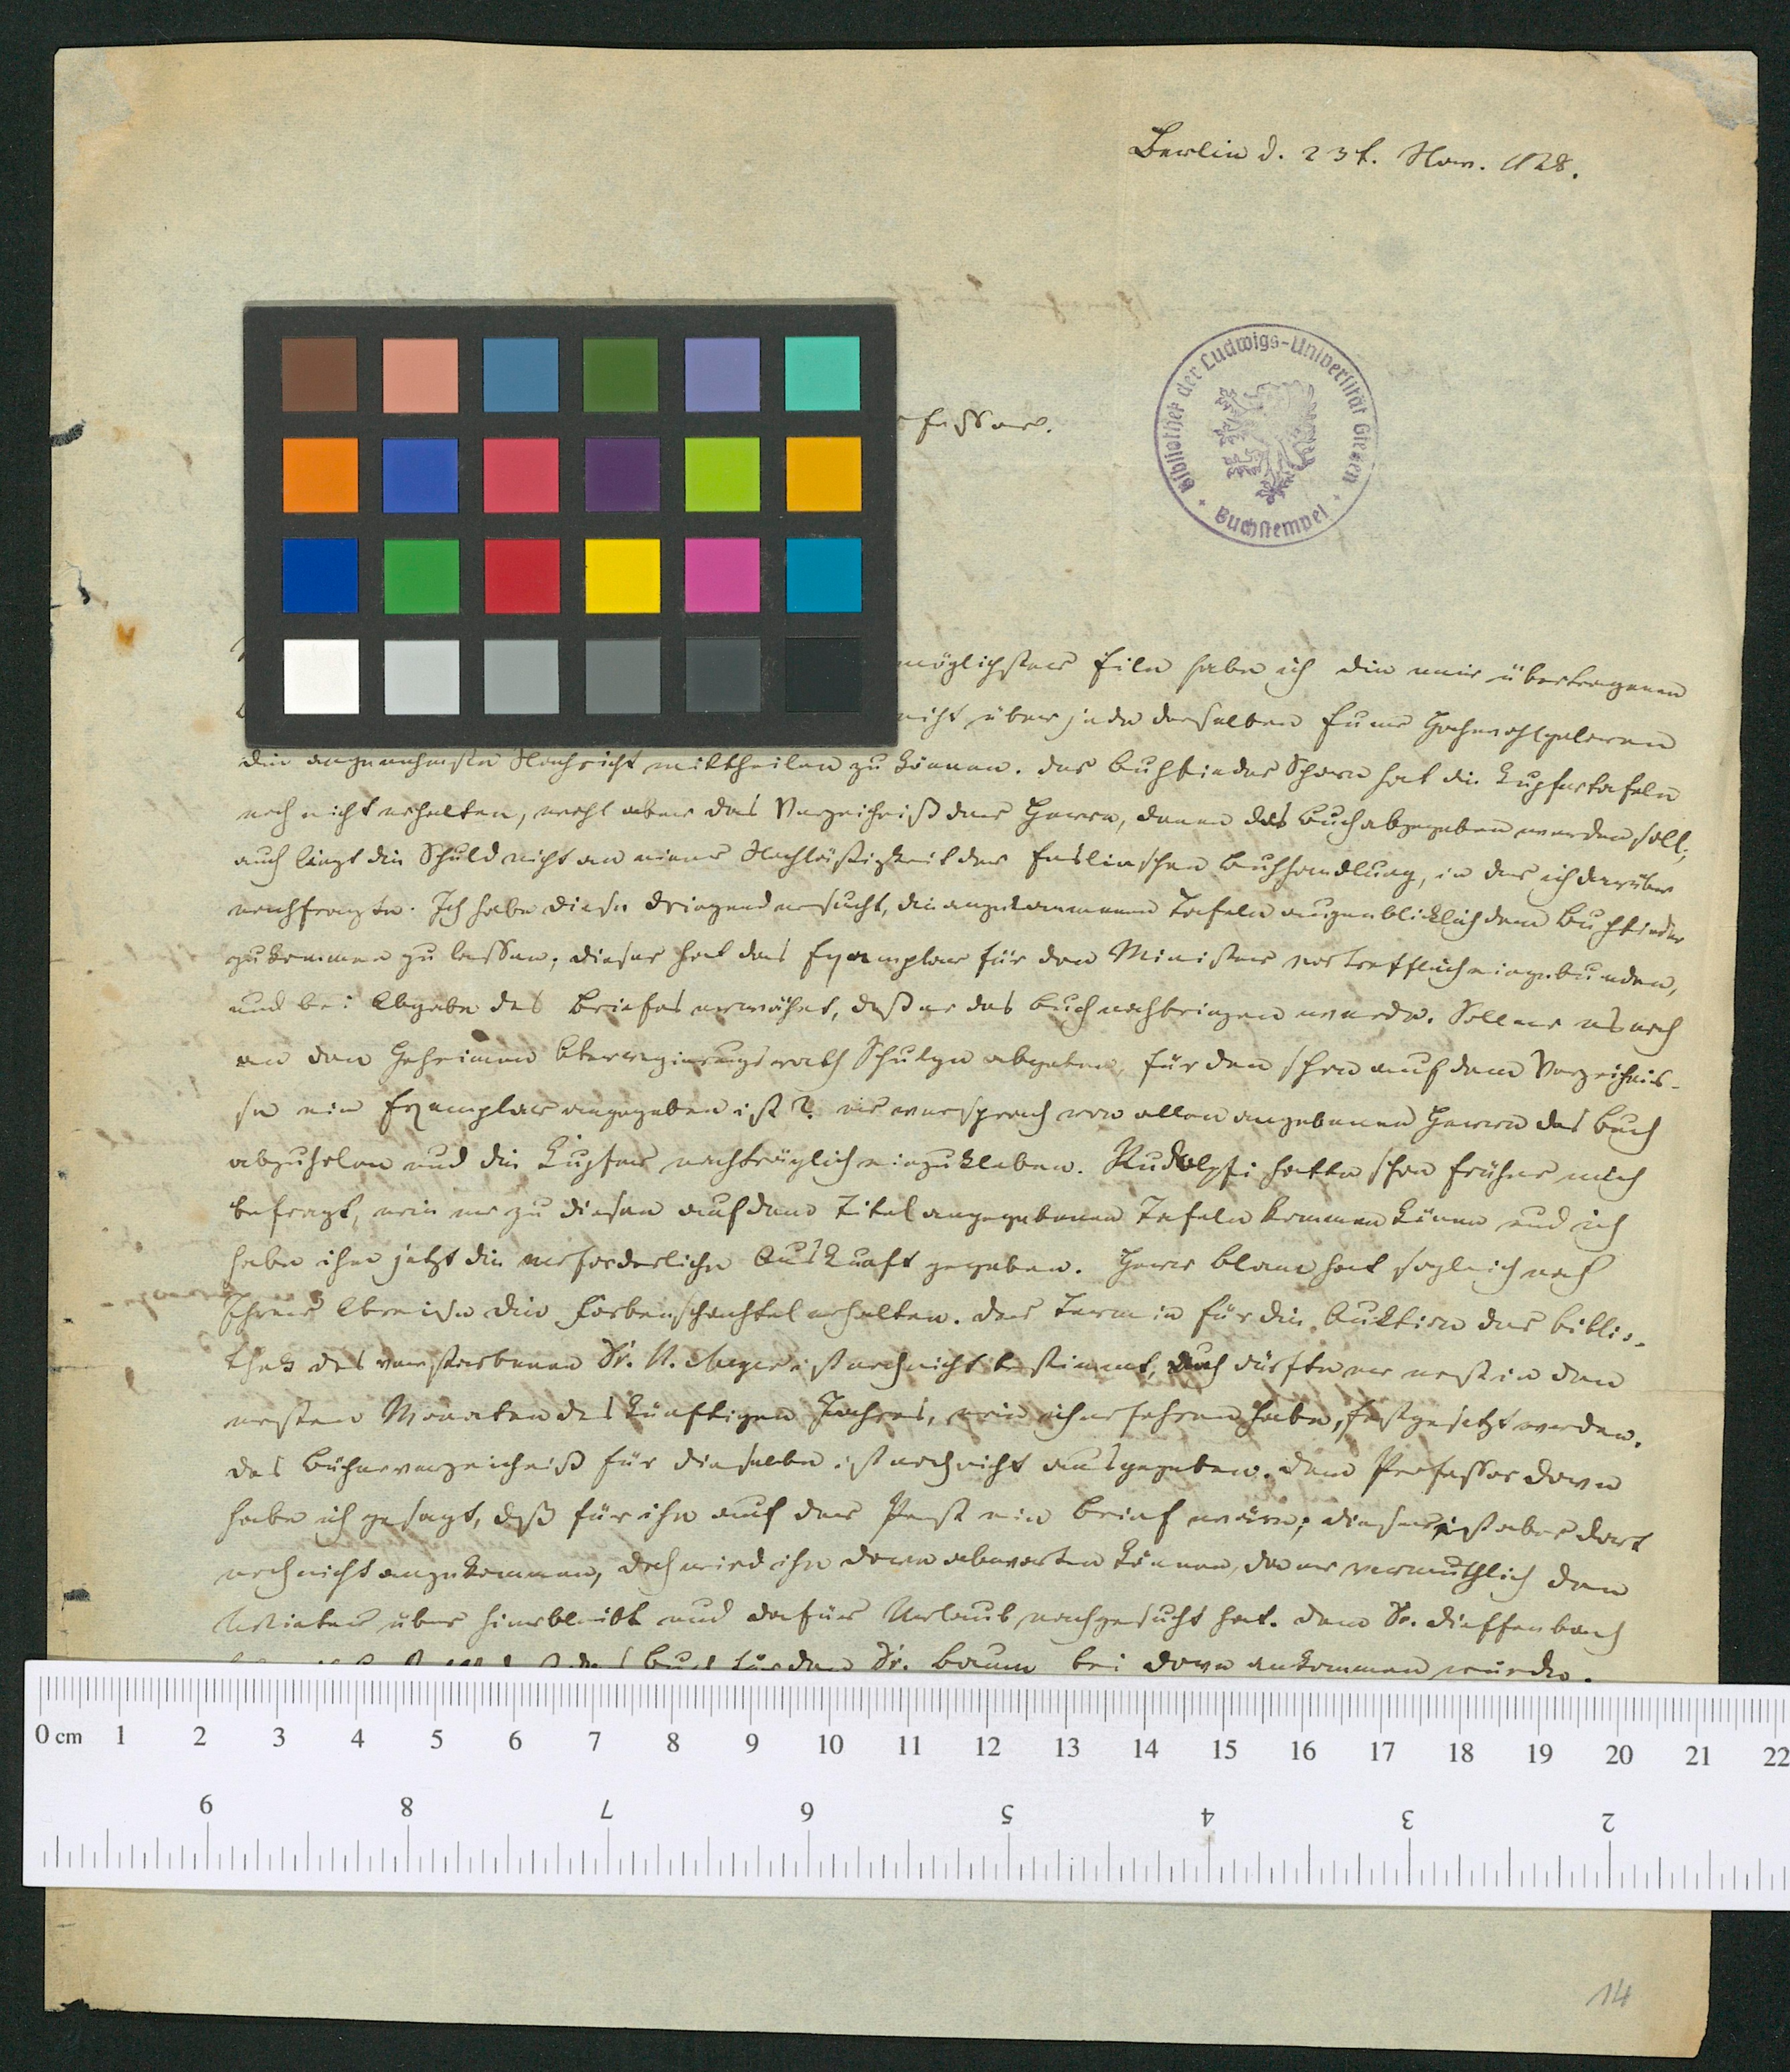 Berlin d. 23t. Nov. 1828.
Bibliothek der Ludwigs-Universität Giessen
Buchstempel
fessor.
möglichster Eile habe ich die mir übertragenen
nicht über jede derselben Euer Hochwohlgeboren
die angenehmste Nachricht mittheilen zu können. Der Buchbinder Schorn hat die Kupfertafeln
noch nicht erhalten, wohl aber das Verzeichniß der Herrn, denen das Buch abgegeben werden soll;
auch liegt die Schuld nicht an einer Nachläßigkeit der Enslinschen Buchhandlung, in der ich darüber
nachfragte. Ich habe diese dringend ersucht, die angekommenen Tafeln augenblicklich dem Buchbinder
zukommen zu lassen; dieser hat das Exemplar für den Minister vortrefflich eingebunden,
und bei Abgabe des Briefes erwähnt, daß er das Buch nachbringen werde. Soll er es noch
an den Geheimen Oberregierungsrath Schulze abgeben, für den schon auf dem Verzeichnis-
se ein Exemplar angegeben ist? er versprach von allen angebenen Herrn das Buch
abzuholen und die Kupfer nachträglich einzukleben. Rudolphi hatte schon früher mich
befragt, wie er zu diesen auf dem Titel angegebenen Tafeln kommen könne und ich
habe ihm jetzt die erforderliche Auskunft gegeben. Herr Blanc hat sogleich nach
Ihrer Abreise die Farbenschachtel erhalten. Der Termin für die Auktion der Biblio-
thek des verstorbenen Dr. N. Meyer ist noch nicht bestimmt, doch dürfte er erst in den
ersten Monaten des künftigen Jahres, wie ich erfahren habe, festgesetzt werden.
Das Bücherverzeichniß für dieselbe ist noch nicht ausgegeben. Dem Professor Dove
habe ich gesagt, daß für ihn auf der Post ein Brief wäre; dieser ist aber dort
noch nicht angekommen, doch wird ihn Dove abwarten können, da er vermuthlich den
Winter über hierbleibt und dafür Urlaub nachgesucht hat. Dem Dr. Dieffenbach
das Buch für den Dr. Baum bei Dove ankommen würde.
0 cm 1 2 3 4 5 6 7 8 9 10 11 12 13 14 15 16 17 18 19 20 21 22
9 8 7 6 5 4 3 2
14